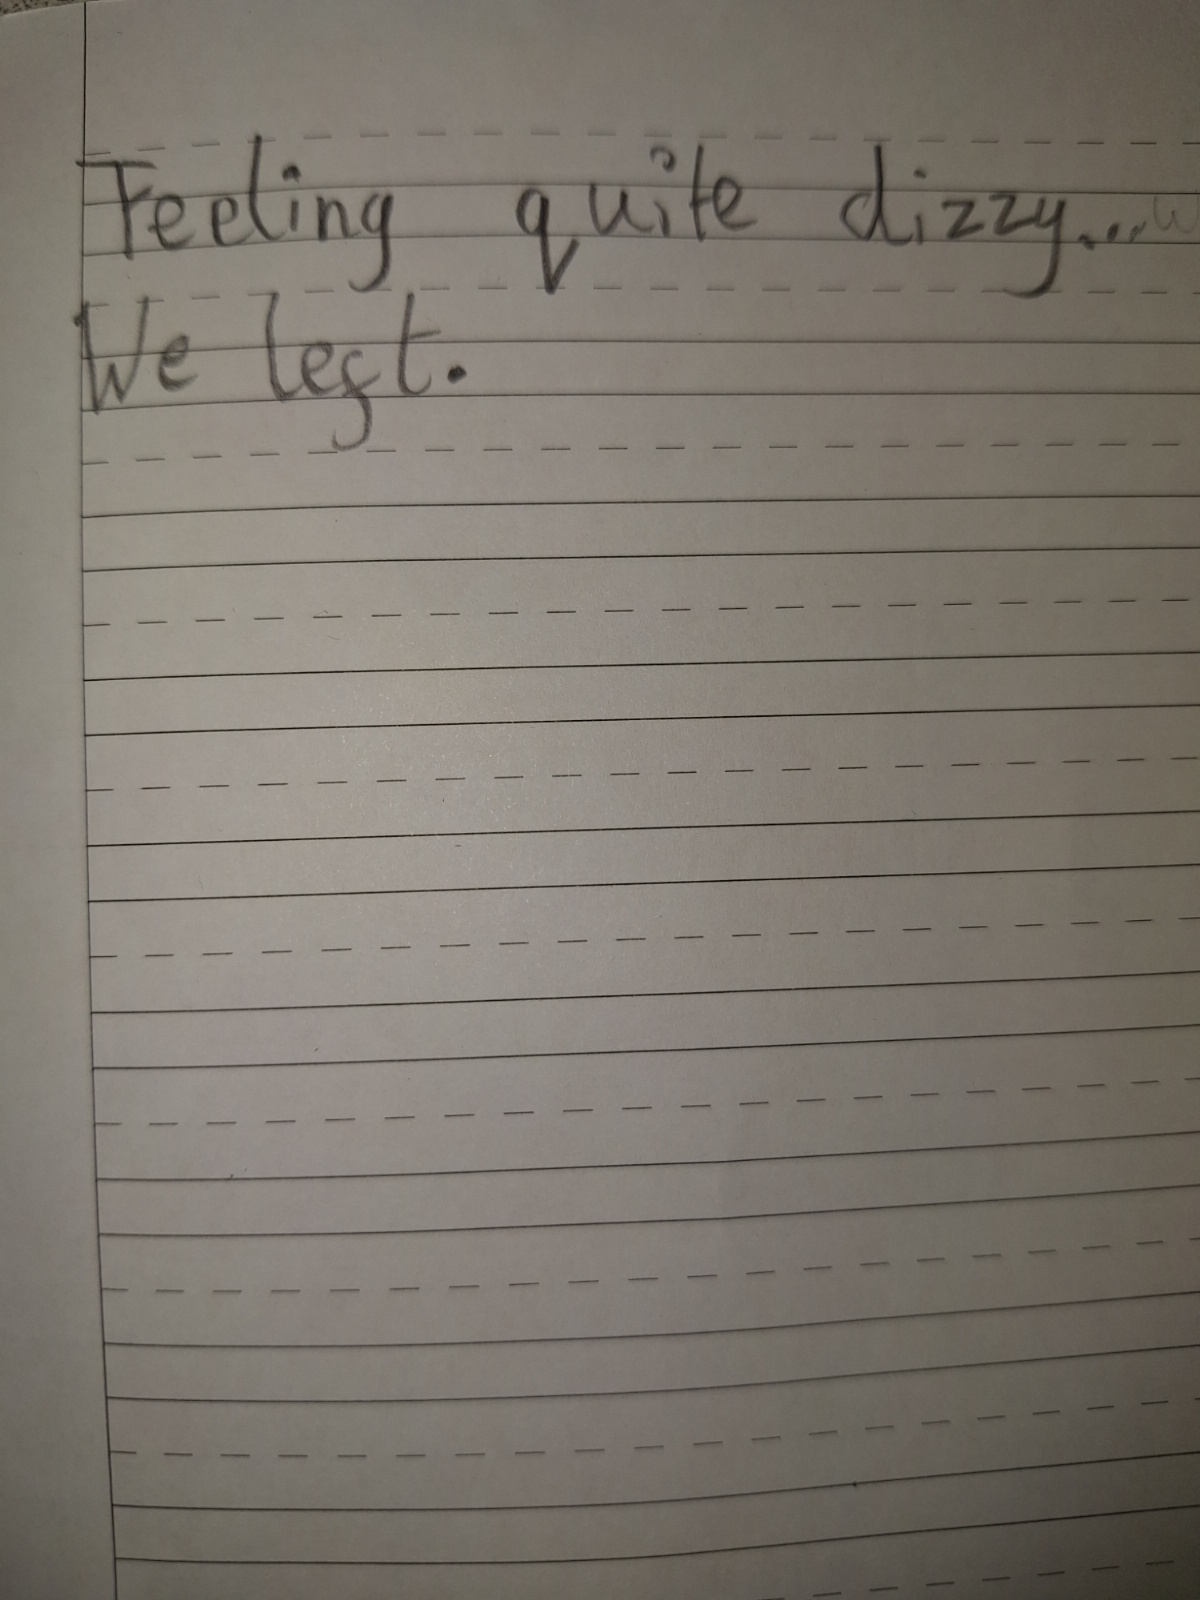 Feeling quite dizzy...
We left.